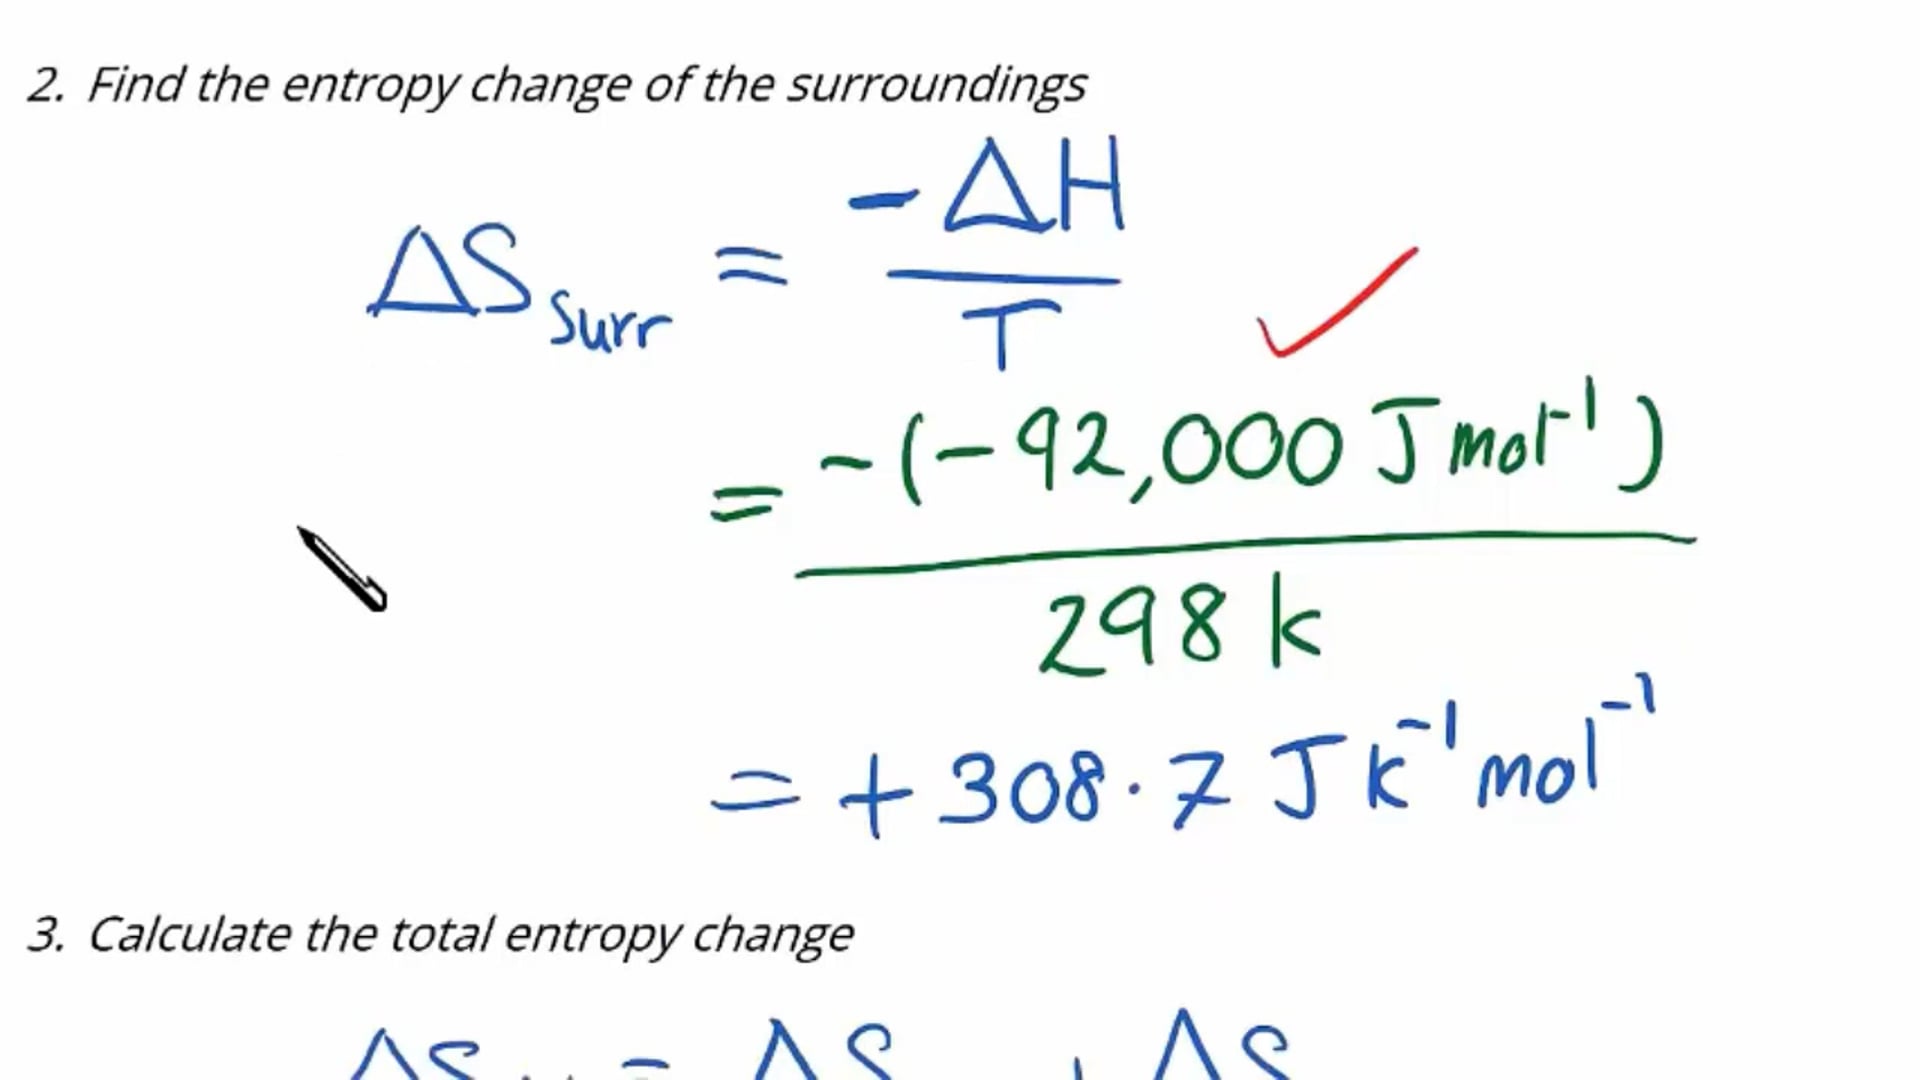 2. Find the entropy change of the surroundings
ΔS surr = -ΔH / T
= -(-92,000 J mol⁻¹) / 298 k
= + 308.7 J k⁻¹ mol⁻¹
3. Calculate the total entropy change
ΔS = ΔS + ΔS